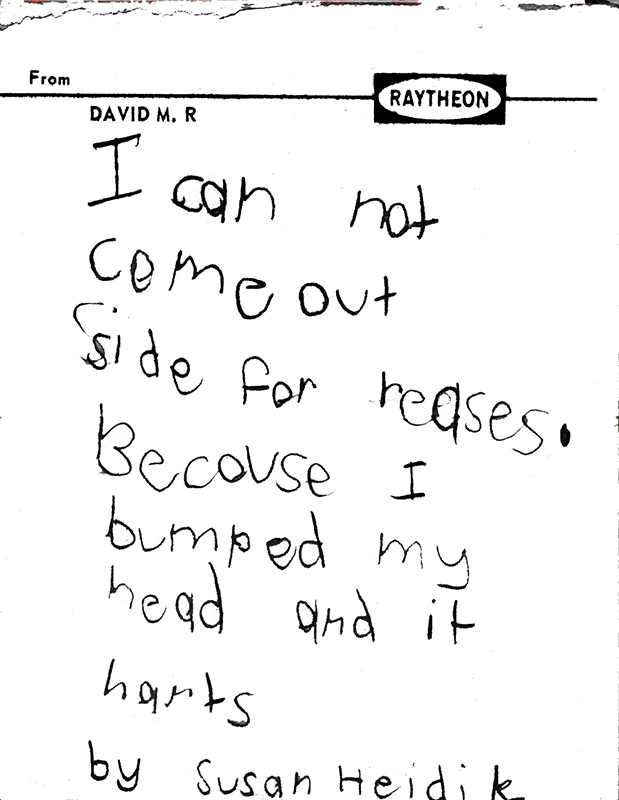 From
RAYTHEON
DAVID M. R
I can not
come out
side for reases.
Becouse I
bumped my
head and it
harts
by Susan Heidik